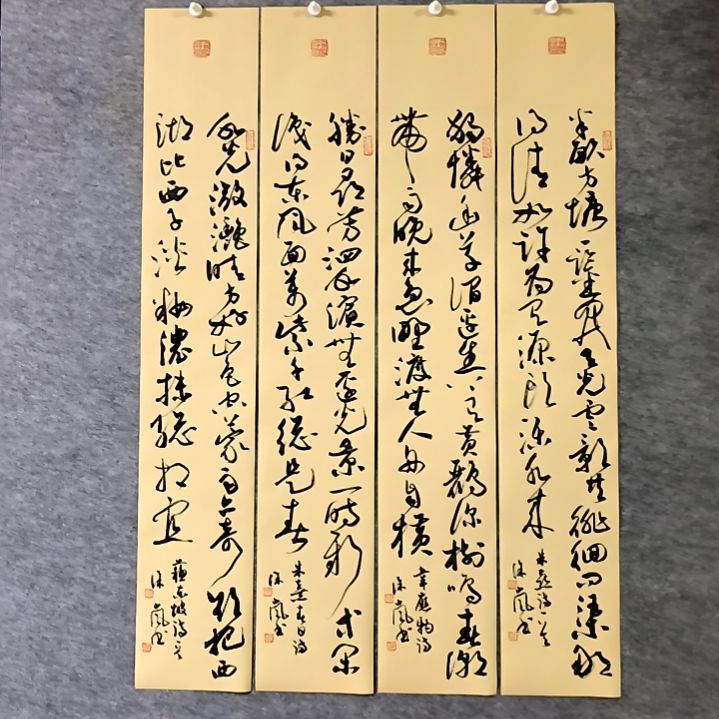 半畝方塘一鑑開天光雲影共徘徊問渠那
得清如許為有源頭活水來
朱熹詩一首
嵐书
獨憐幽草澗邊生上有黃鸝深樹鳴春潮
帶雨晚來急野渡無人舟自橫
韋應物詩
嵐书
勝日尋芳泗水濱無邊光景一時新等閒
識得東風面萬紫千紅總是春
朱熹春日詩
嵐书
水光瀲灩晴方好山色空蒙雨亦奇欲把西
湖比西子淡妝濃抹總相宜
蘇東坡詩一首
嵐书